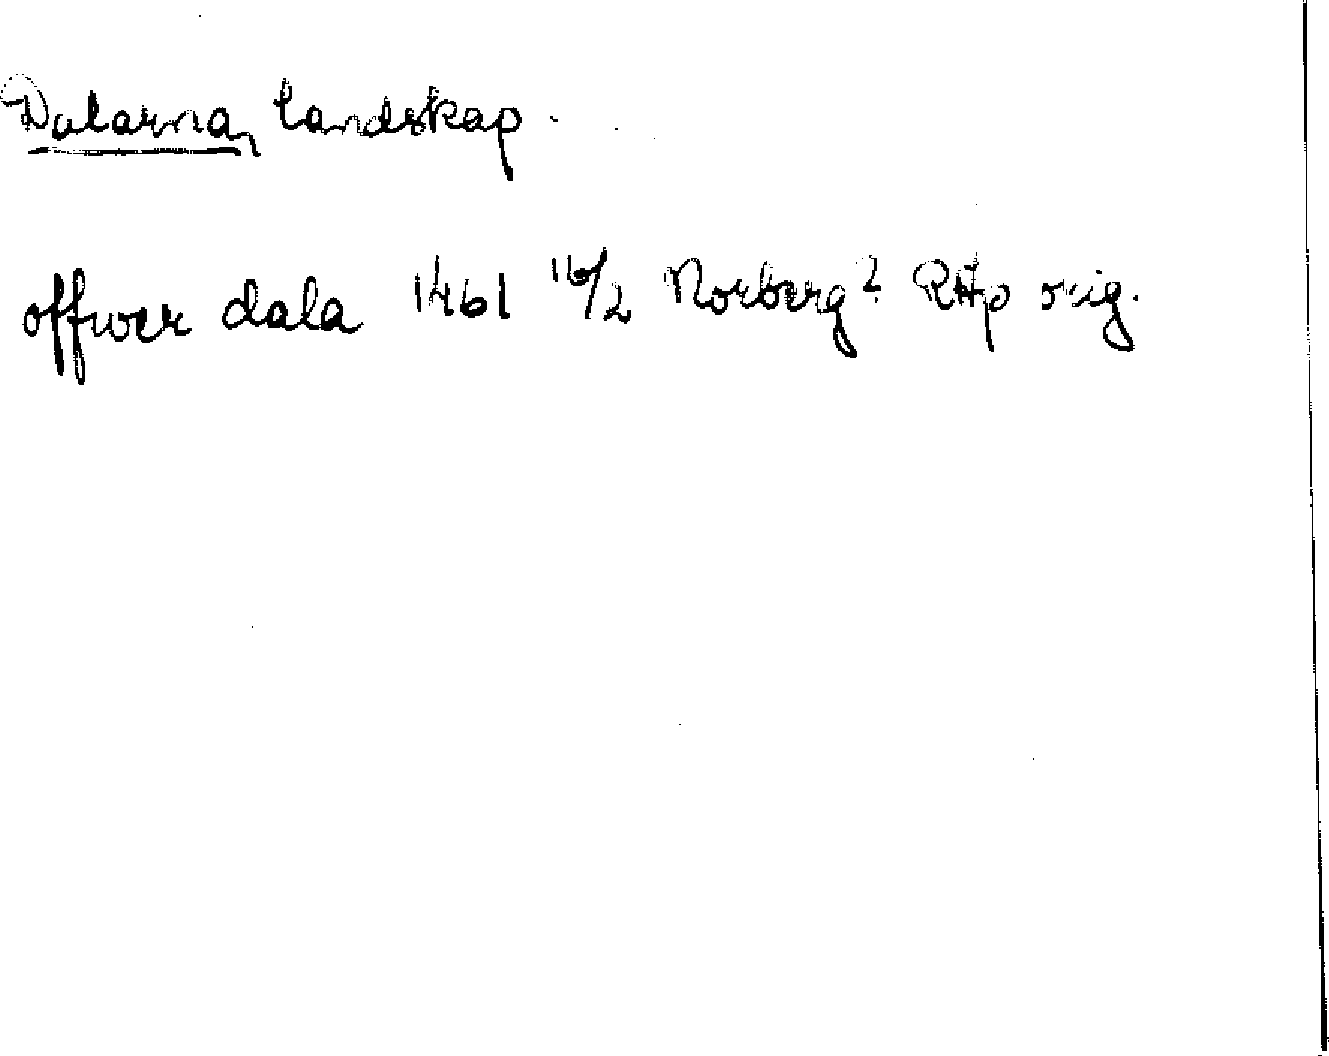 Dalarna, landskap.
offwer dala 1461 16/2 Norberg? RAp orig.